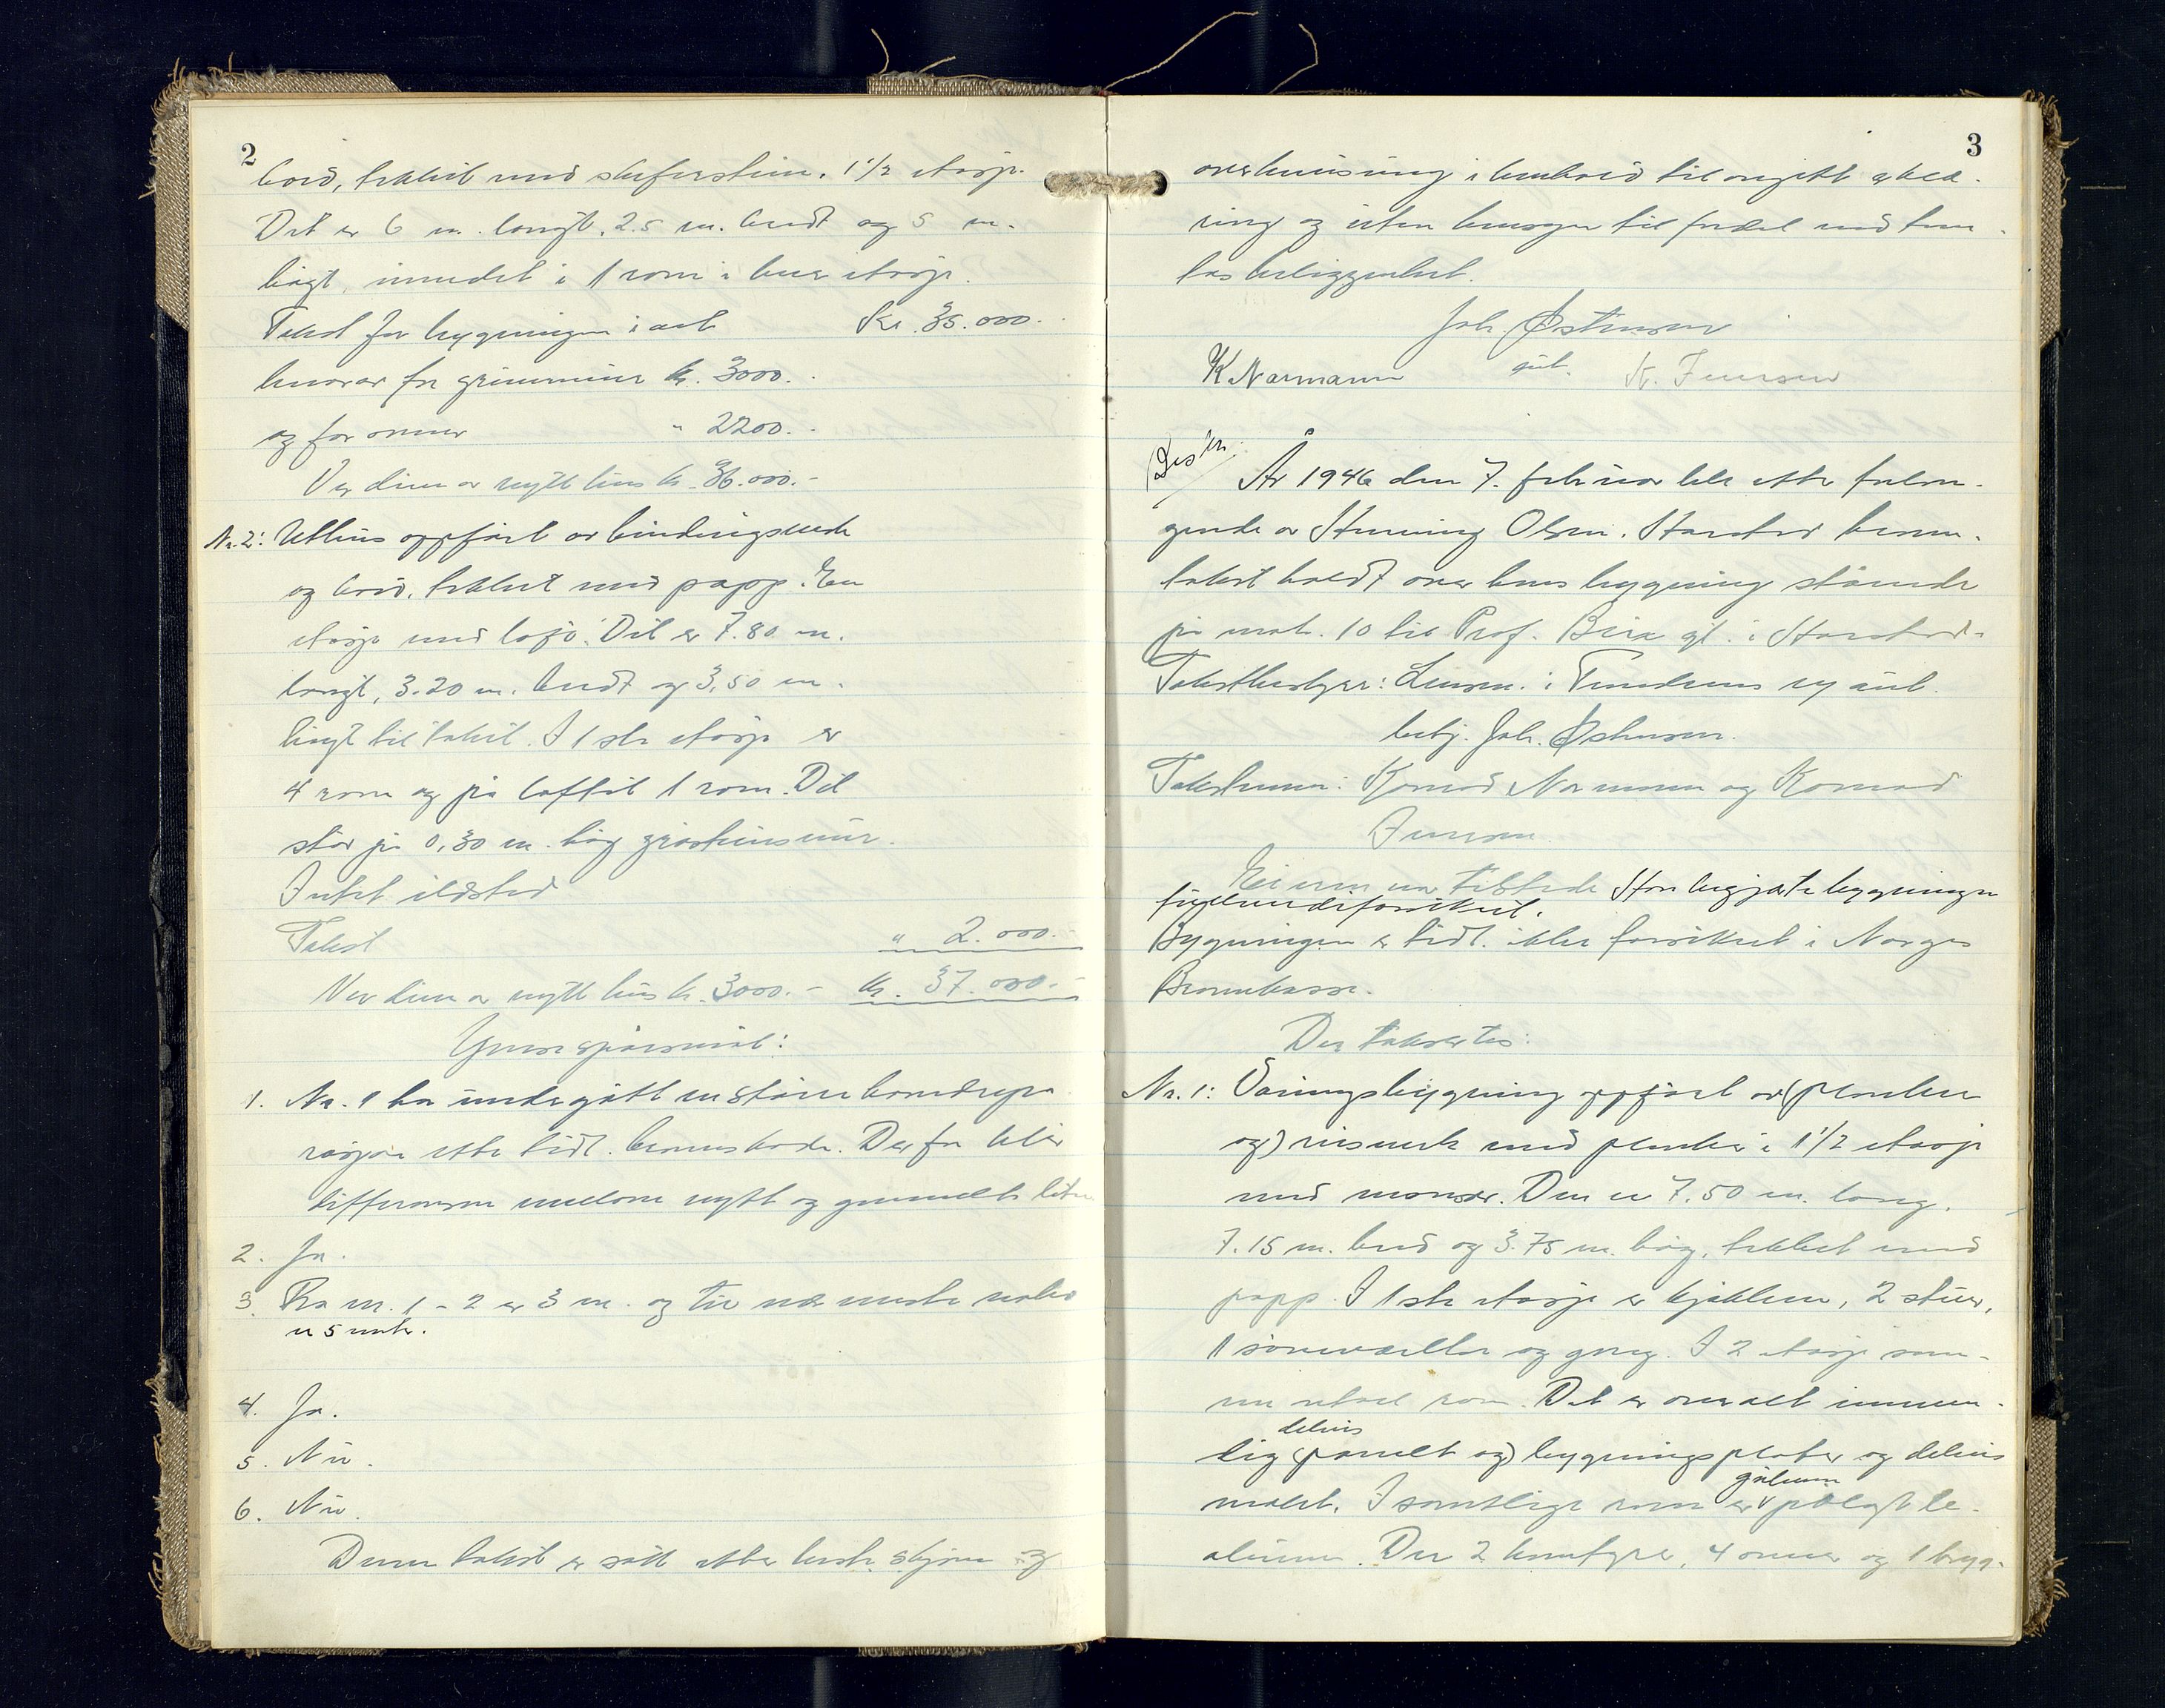 2
bord, tekket med skiferstein. 1 1/2 etasje.
Det er 6 m. langt, 2.5 m. bredt og 5 m.
høgt, innredet i 1 rom i hver etasje.
Takst for bygningen i alt Kr. 35.000.-
hvorav for grunnmur kr. 3000.-
og for ovner " 2200.-
Verdien av nytt hus kr. 36.000.-
Nr. 2: Uthus oppført av bindingsverk
og bord, tekket med papp. En
etasje med loft. Det er 7.80 m.
langt, 3.20 m. bredt og 3,50 m.
høgt til taket. I 1ste etasje er
4 rom og på loftet 1 rom. Det
står på 0,30 m. høg gråsteinsmur.
Intet ildsted
Takst " 2.000.-
Verdien av nytt hus kr. 3000.- kr. 37.000.-
1. Nr. 1 har undergått en større
rasjon etter tidl. Derfor blir
differansen mellom nytt og gammelt liten
2. Ja.
3. Fra nr. 1 - 2 er 3 m. og til nærmeste nabo
er 5 mtr.
4. Ja.
5. Nei.
6. Nei.
Denne takst er satt etter beste skjønn og
3
overbevisning i henhold til avgitt erklæ-
ring og uten hensyn til fordel ved tom-
tas beliggenhet.
Joh. Østensen
K. Normann K. Jensen
År 1946 den 7. februar ble etter forlan-
gende av Henning Olsen, Harstad brann-
takst holdt over hans bygning stående
på matr. 10 til Prof. gt. i Harstad.
Takstbestyrer: Lensm. i Trondenes
Joh. Østensen.
Takstmenn: Konrad Normann og Konrad
Jensen
Eieren var tilstede. Han begjærte bygningen
Bygningen er tidl. ikke forsikret i Norges
Brannkasse.
Der takserte:
Nr. 1: Våningsbygning oppført av (planker
og) reisverk med planker i 1 1/2 etasje
med mansar. Den er 7.50 m. lang,
7.15 m. bred og 3.75 m. høg, tekket med
papp. I 1ste etasje er kjøkken, 2 stuer,
1 soveværelse og gang. I 2 etasje sam-
me antal rom. Det er overalt innven-
delvis
dig (panelt og) bygningsplater og delvis
gulvene
malet. I samtlige rom er pålagt li-
oleum. Der 2 komfyrer, 4 ovner og 1 brygg-